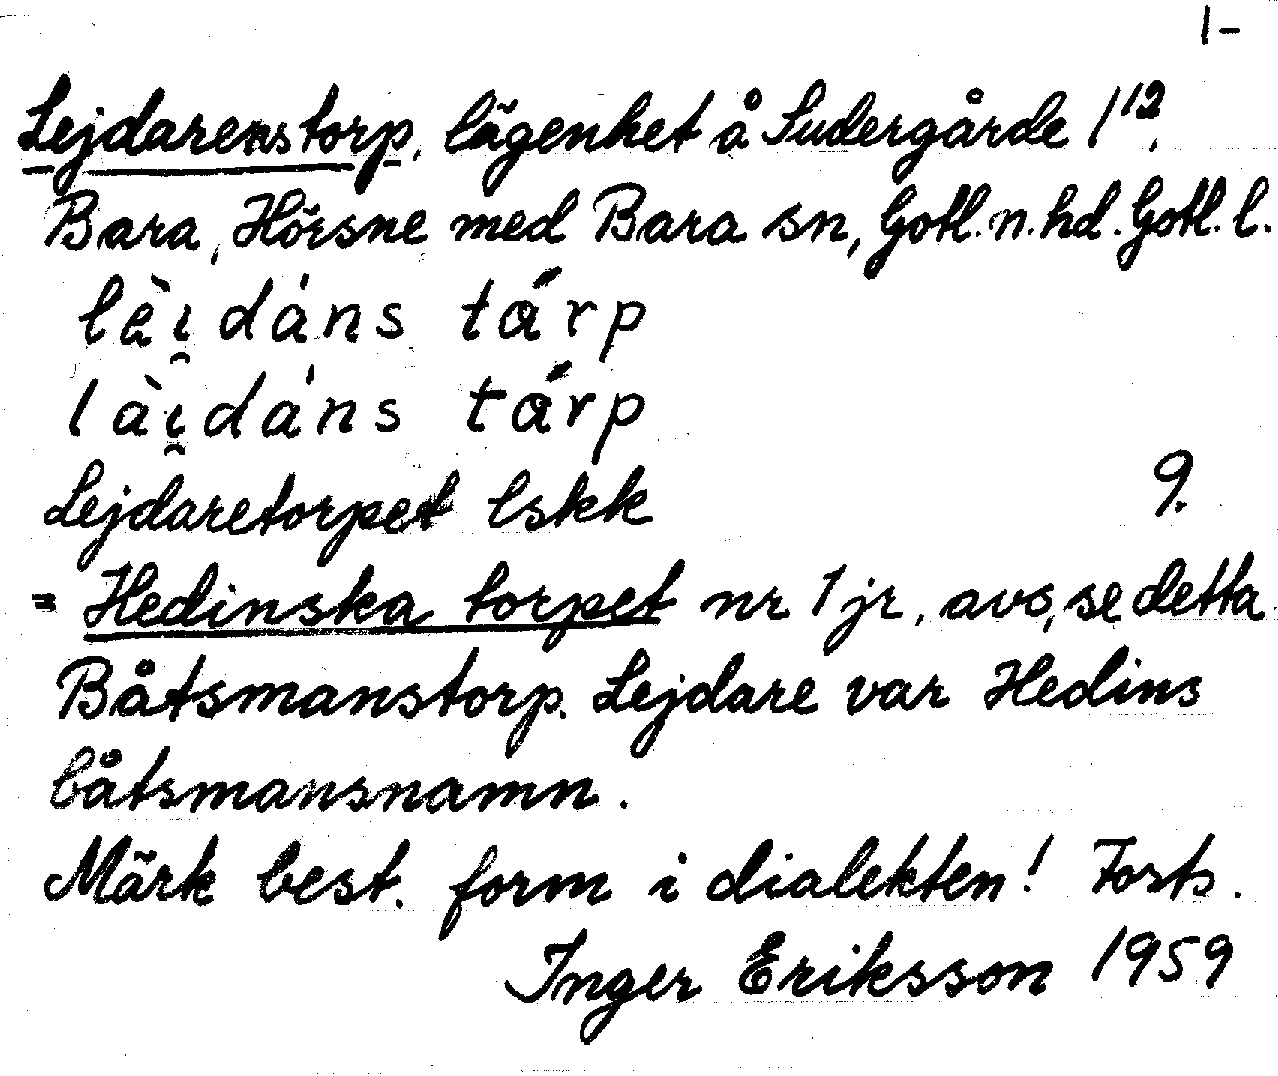 1-
Lejdarenstorp, lägenhet å Sudergårde 1¹².
Bara, Hörsne med Bara sn, Gotl. n. hd. Gotl. l.
lèi̯dáns tárp
lài̯dáns tárp
Lejdaretorpet lskk 9.
= Hedinska torpet nr 1 jr, avs, se detta.
Båtsmanstorp. Lejdare var Hedins
båtsmansnamn.
Märk best. form i dialekten! Forts.
Inger Eriksson 1959